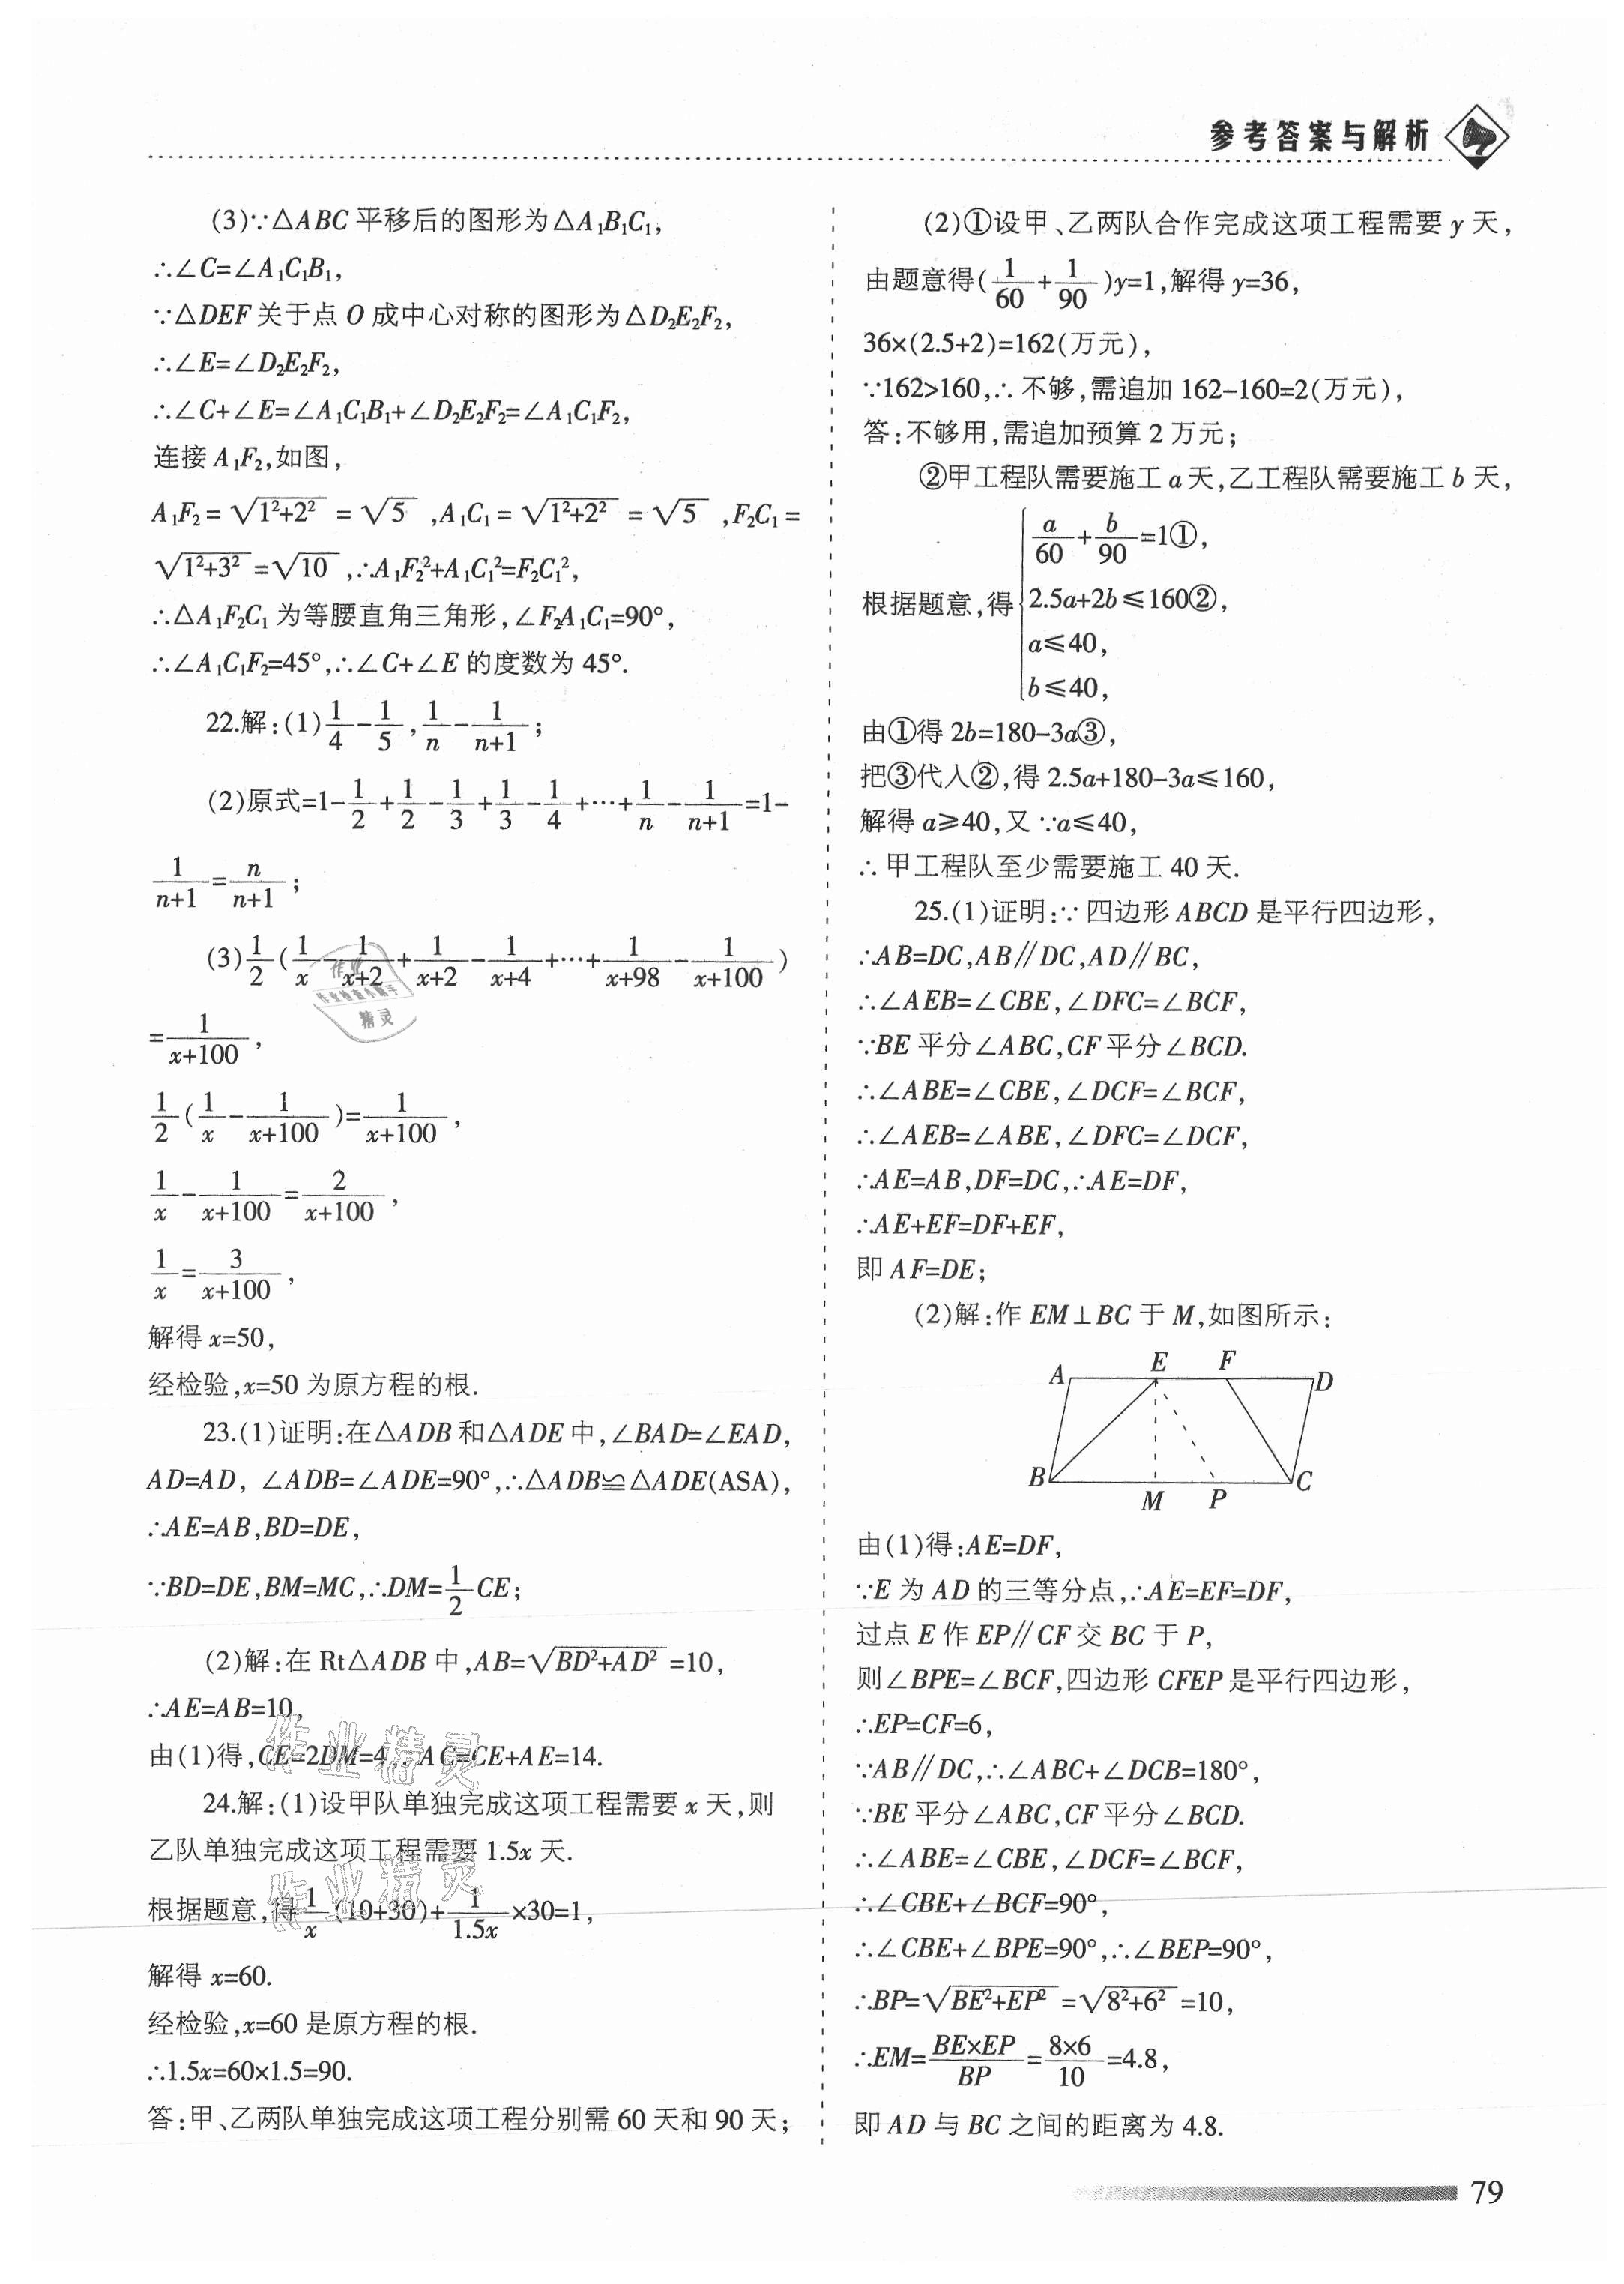 参考答案与解析
(3)∵△ABC 平移后的图形为△A₁B₁C₁,
∴∠C=∠A₁C₁B₁,
∵△DEF 关于点 O 成中心对称的图形为△D₂E₂F₂,
∴∠E=∠D₂E₂F₂,
∴∠C+∠E=∠A₁C₁B₁+∠D₂E₂F₂=∠A₁C₁F₂,
连接 A₁F₂,如图,
A₁F₂=√(1²+2²)=√5,A₁C₁=√(1²+2²)=√5,F₂C₁=
√(1²+3²)=√10,∴A₁F₂²+A₁C₁²=F₂C₁²,
∴△A₁F₂C₁ 为等腰直角三角形,∠F₂A₁C₁=90°,
∴∠A₁C₁F₂=45°,∴∠C+∠E 的度数为 45°.
22.解:(1)1/4-1/5,1/n-1/(n+1);
(2)原式=1-1/2+1/2-1/3+1/3-1/4+…+1/n-1/(n+1)=1-
1/(n+1)=n/(n+1);
(3)1/2(1/x-1/(x+2)+1/(x+2)-1/(x+4)+…+1/(x+98)-1/(x+100))
=1/(x+100),
1/2(1/x-1/(x+100))=1/(x+100),
1/x-1/(x+100)=2/(x+100),
1/x=3/(x+100),
解得 x=50,
经检验,x=50 为原方程的根.
23.(1)证明:在△ADB 和△ADE 中,∠BAD=∠EAD,
AD=AD, ∠ADB=∠ADE=90°,∴△ADB≌△ADE(ASA),
∴AE=AB,BD=DE,
∵BD=DE,BM=MC,∴DM=1/2CE;
(2)解:在 Rt△ADB 中,AB=√(BD²+AD²)=10,
∴AE=AB=10,
由(1)得,CE=2DM=4,∴AC=CE+AE=14.
24.解:(1)设甲队单独完成这项工程需要 x 天,则
乙队单独完成这项工程需要 1.5x 天.
根据题意,得1/x(10+30)+1/1.5x×30=1,
解得 x=60.
经检验,x=60 是原方程的根.
∴1.5x=60×1.5=90.
答:甲、乙两队单独完成这项工程分别需 60 天和 90 天;
(2)①设甲、乙两队合作完成这项工程需要 y 天,
由题意得(1/60+1/90)y=1,解得 y=36,
36×(2.5+2)=162(万元),
∵162>160,∴不够,需追加 162-160=2(万元),
答:不够用,需追加预算 2 万元;
②甲工程队需要施工 a 天,乙工程队需要施工 b 天,
a/60+b/90=1①,
根据题意,得 2.5a+2b≤160②,
a≤40,
b≤40,
由①得 2b=180-3a③,
把③代入②,得 2.5a+180-3a≤160,
解得 a≥40,又∵a≤40,
∴甲工程队至少需要施工 40 天.
25.(1)证明:∵四边形 ABCD 是平行四边形,
∴AB=DC,AB∥DC,AD∥BC,
∴∠AEB=∠CBE,∠DFC=∠BCF,
∵BE 平分∠ABC,CF 平分∠BCD.
∴∠ABE=∠CBE,∠DCF=∠BCF,
∴∠AEB=∠ABE,∠DFC=∠DCF,
∴AE=AB,DF=DC,∴AE=DF,
∴AE+EF=DF+EF,
即 AF=DE;
(2)解:作 EM⊥BC 于 M,如图所示:
A E F D
B M P C
由(1)得:AE=DF,
∵E 为 AD 的三等分点,∴AE=EF=DF,
过点 E 作 EP∥CF 交 BC 于 P,
则∠BPE=∠BCF,四边形 CFEP 是平行四边形,
∴EP=CF=6,
∵AB∥DC,∴∠ABC+∠DCB=180°,
∵BE 平分∠ABC,CF 平分∠BCD.
∴∠ABE=∠CBE,∠DCF=∠BCF,
∴∠CBE+∠BCF=90°,
∴∠CBE+∠BPE=90°,∴∠BEP=90°,
∴BP=√(BE²+EP²)=√(8²+6²)=10,
∴EM=BE×EP/BP=8×6/10=4.8,
即 AD 与 BC 之间的距离为 4.8.
79
作业
作业检查小助手
精灵
作业精灵
作业精灵